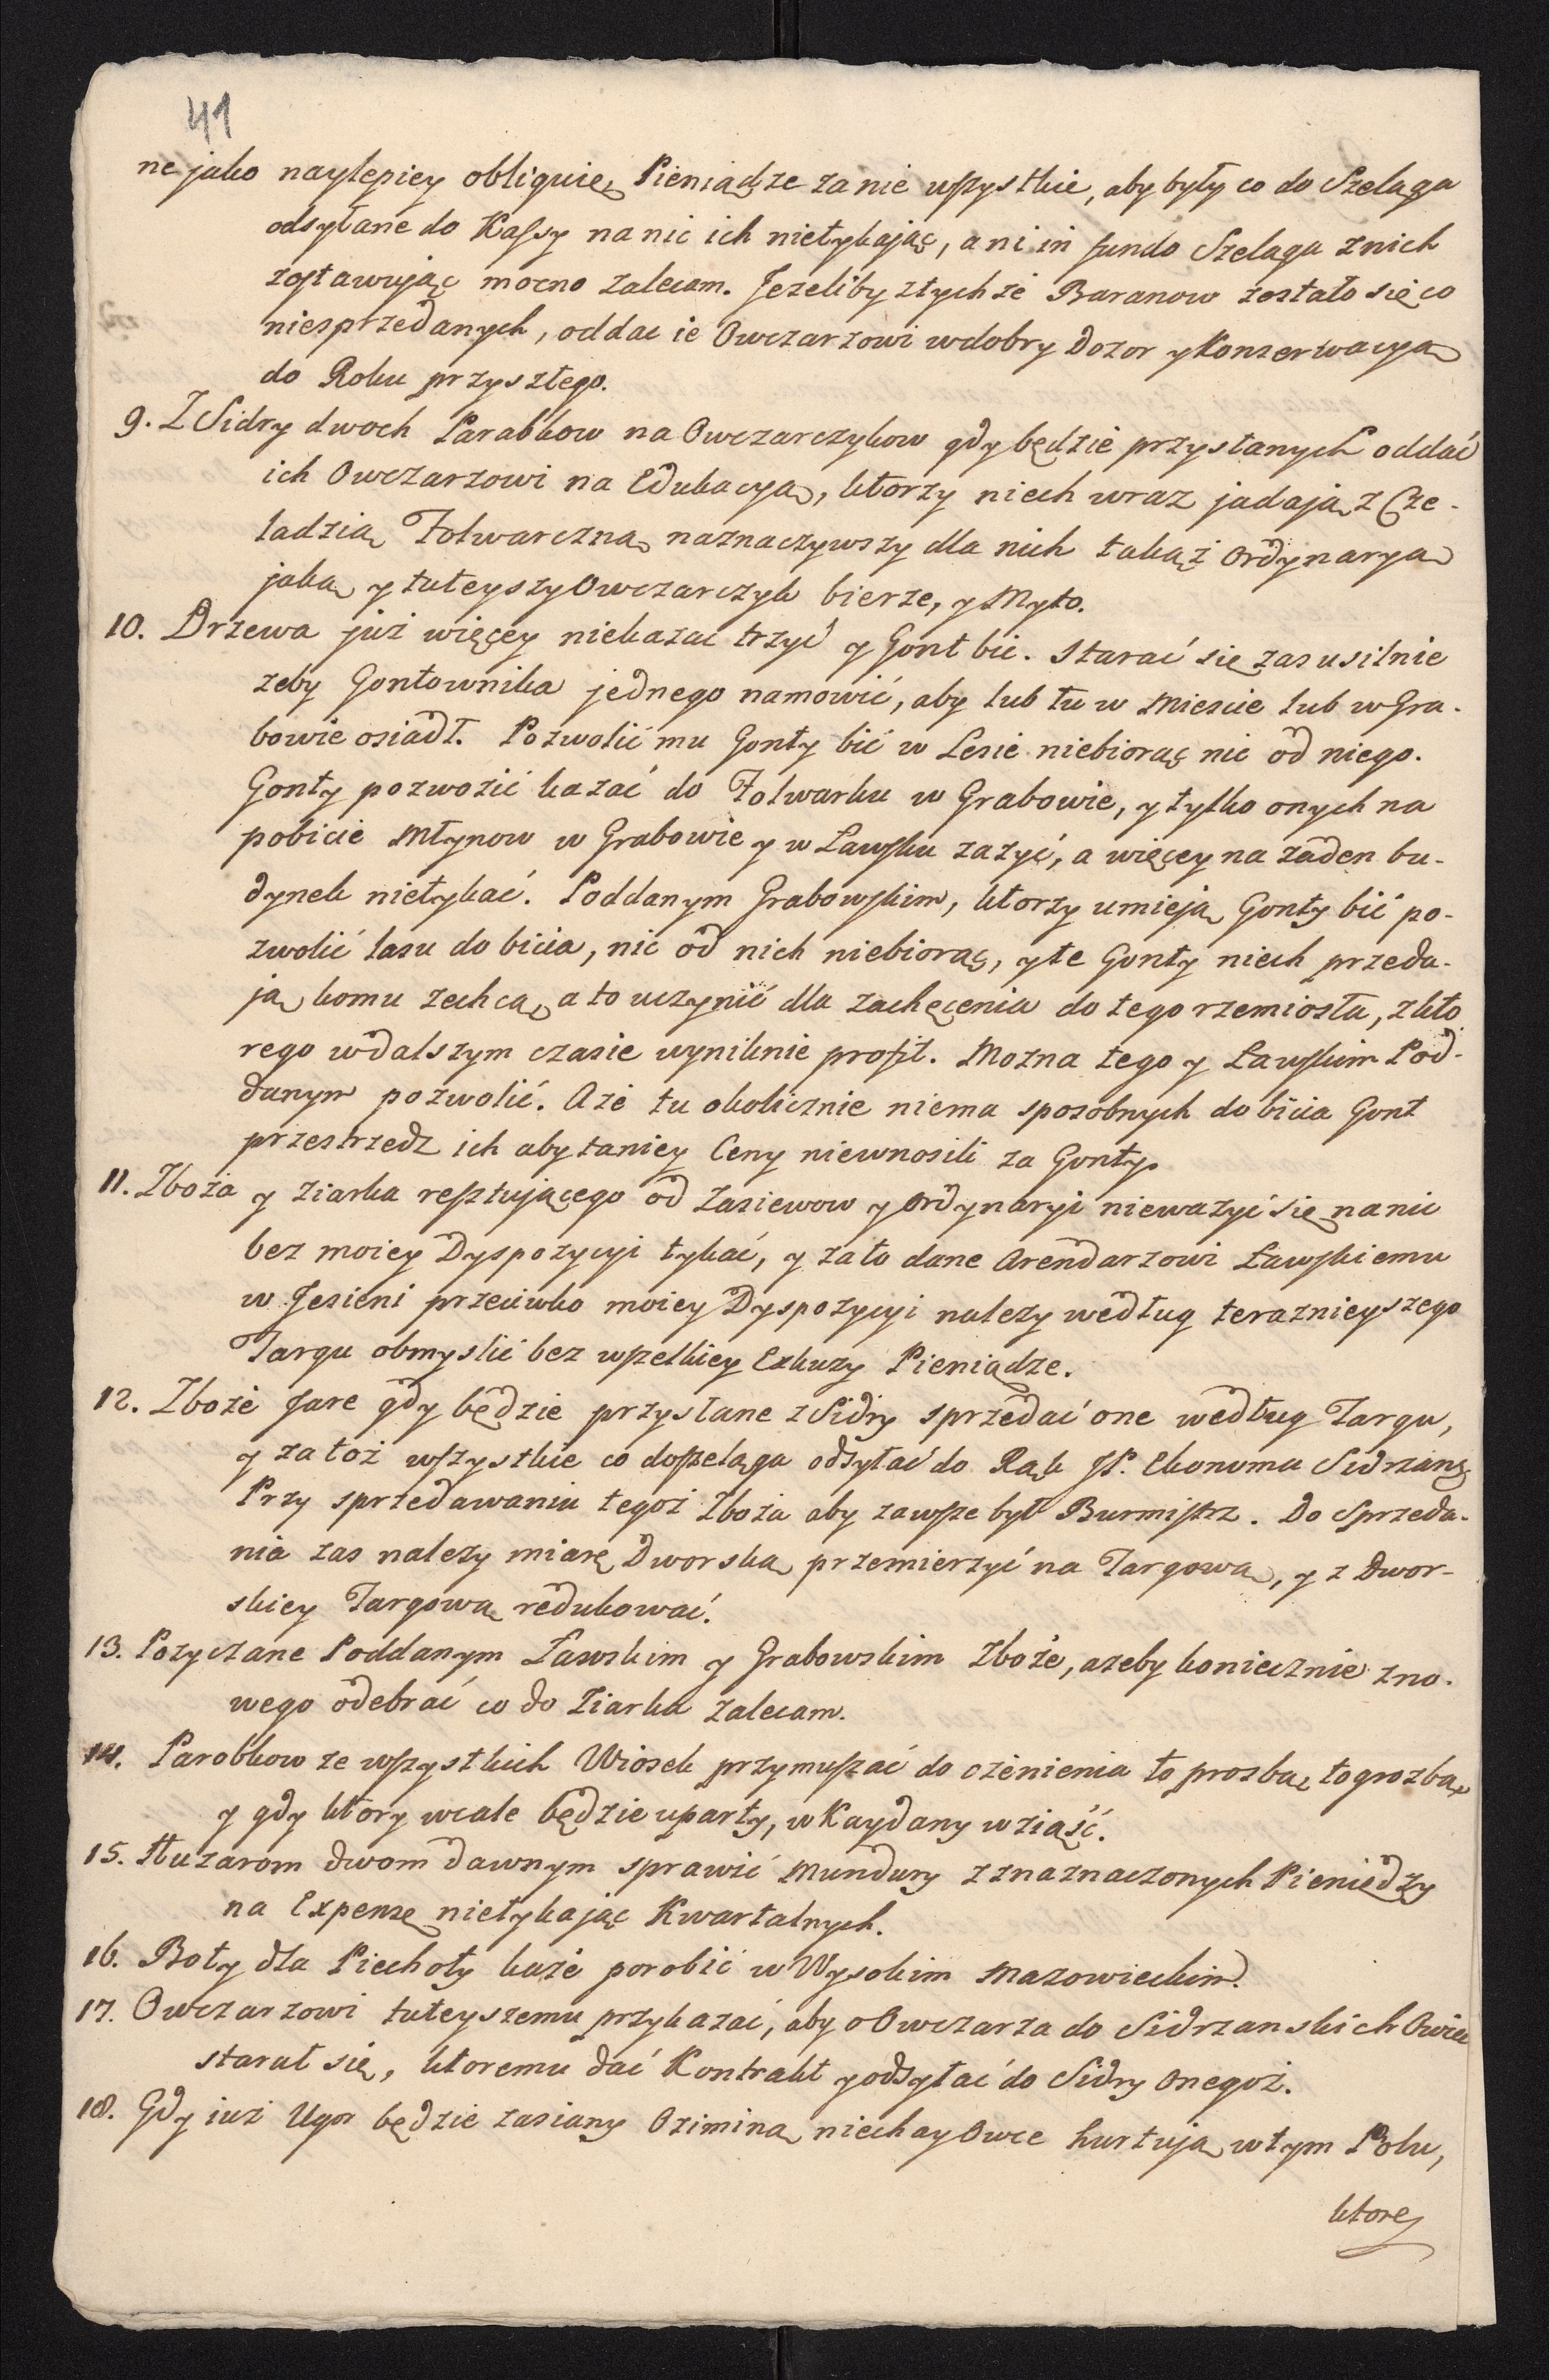 41
ne jako naylepiey obliguię, Pieniądze za nie wszystkie, aby były co do Szeląga
odsyłane do Kassy na nic ich nietykaiąc, ani in fundo Szeląga z nich
zostawując mocno zalecam. Jezeliby z tychże Baranow zostało się co
niesprzedanych, oddac ie Owczarzowi w dobry Dozor y Konserwacyą
do Roku przyszłego.
9. Z Sidry dwoch Parabkow na Owczarczykow gdy będzie przysłanych oddać
ich Owczarzowi na Edukacyą, ktorzy niech wraz jadają z Cze-
ladzią Folwarczną, naznaczywszy dla nich takąż Ordynaryą
jaką y tuteyszy Owczarczyk bierze, y Myto.
10. Drzewa już więcey niekazać trzyć y Gont bić. Starać się zas usilnie
zeby Gontownika jednego namowić, aby lub tu w Miescie lub w Gra-
bowie osiadł. Pozwolić mu Gonty bić w Lesie niebiorąc nic od niego.
Gonty pozwozić kazać do Folwarku w Grabowie, y tylko onych na
pobicie Młynow w Grabowie y w Ławsku zazyć, a więcey na zaden bu-
dynek nietykać. Poddanym Grabowskim, ktorzy umieją Gonty bić po-
zwolić lasu do bicia, nic od nich niebiorąc, y te Gonty niech przeda-
ją komu zechcą, a to uczynić dla zachęcenia do tego rzemiosła, z kto
rego w dalszym czasie wyniknie profit. Mozna tego y Ławskim Pod-
danym pozwolić. A że tu okolicznie niema sposobnych do bicia Gont
przestrzedz ich aby taniey Ceny niewnosili za Gonty.
11. Zboża y ziarka resztującego od Zasiewow y Ordynaryi nieważyć się na nic
bez moiey Dyspozycyi tykać, y za to dane Arendarzowi Ławskiemu
w Jesieni przeciwko moiey Dyspozycyi nalezy według teraznieyszego
Targu obmyslić bez wszelkiey Exkuzy Pieniądze.
12. Zboże Jare gdy będzie przysłane z Sidry sprzedać one według Targu,
y za toż wszystkie co do szeląga odsyłać do Rąk JP. Ekonoma Sidrzans
Przy sprzedawaniu tegoż Zboża aby zawsze był Burmistrz. Do Sprzeda-
nia zas nalezy miarę Dworską przemierzyć na Targową, y z Dwor-
skiey Targową redukować.
13. Pozyczane Poddanym Ławskim y Grabowskim Zboże, azeby koniecznie z no-
wego odebrać co do Ziarka zalecam.
14. Parobkow ze wszystkich Wiosek przymuszać do ożenienia to prozbą, to grozbą,
y gdy ktory wcale będzie uparty, w Kaydany wziąść.
15. Huzarom dwom dawnym sprawić Mundury z znaznaczonych Pieniędzy
na Expensę nietykając Kwartalnych.
16. Boty dla Piechoty każe porobić w Wysokim Mazowieckim.
17. Owczarzowi tuteyszemu przykazać, aby o Owczarza do Sidrzanskich Owiec
starał się, ktoremu dać Kontrakt y odsyłać do Sidry Onegoż.
18. Gdy iuż Ugor będzie zasiany Oziminą niechay Owce hurtują w tym Polu,
ktore